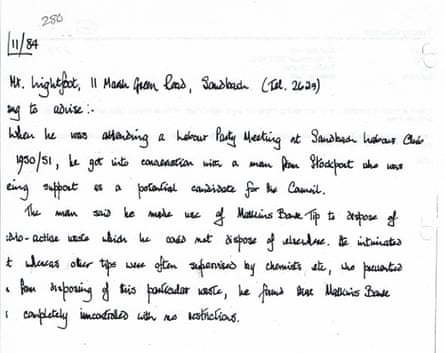 280
11/84
Mr. Lightfoot, 11 Marsh Green Road, Sandbach (Tel. 2629)
ng to advise:-
When he was attending a Labour Party Meeting at Sandbach Labour Club
1950/51, he got into conversation with a man from Stockport who was
eing support as a potential candidate for the Council.
The man said he made use of Malkins Bank Tip to dispose of
dio-active waste which he could not dispose of elsewhere. He intimated
t whereas other tips were often supervised by chemists etc, who prevented
from disposing of this particular waste, he found that Malkins Bank
s completely uncontrolled with no restrictions.